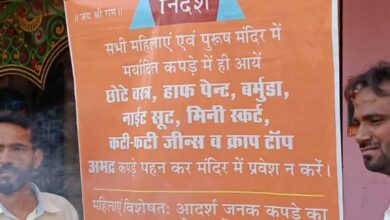 ॥ जय श्री राम ॥
निर्देश
सभी महिलाएं एवं पुरूष मंदिर में
मर्यादित कपड़े में ही आयें
छोटे वस्त्र, हाफ पेन्ट, बर्मुडा,
नाईट सूट, मिनी स्कर्ट,
कटी-फटी जीन्स व क्राप टॉप
अभद्र कपड़े पहन कर मंदिर में प्रवेश न करें।
महिलाएं विशेषतः आदर्श जनक कपड़े का